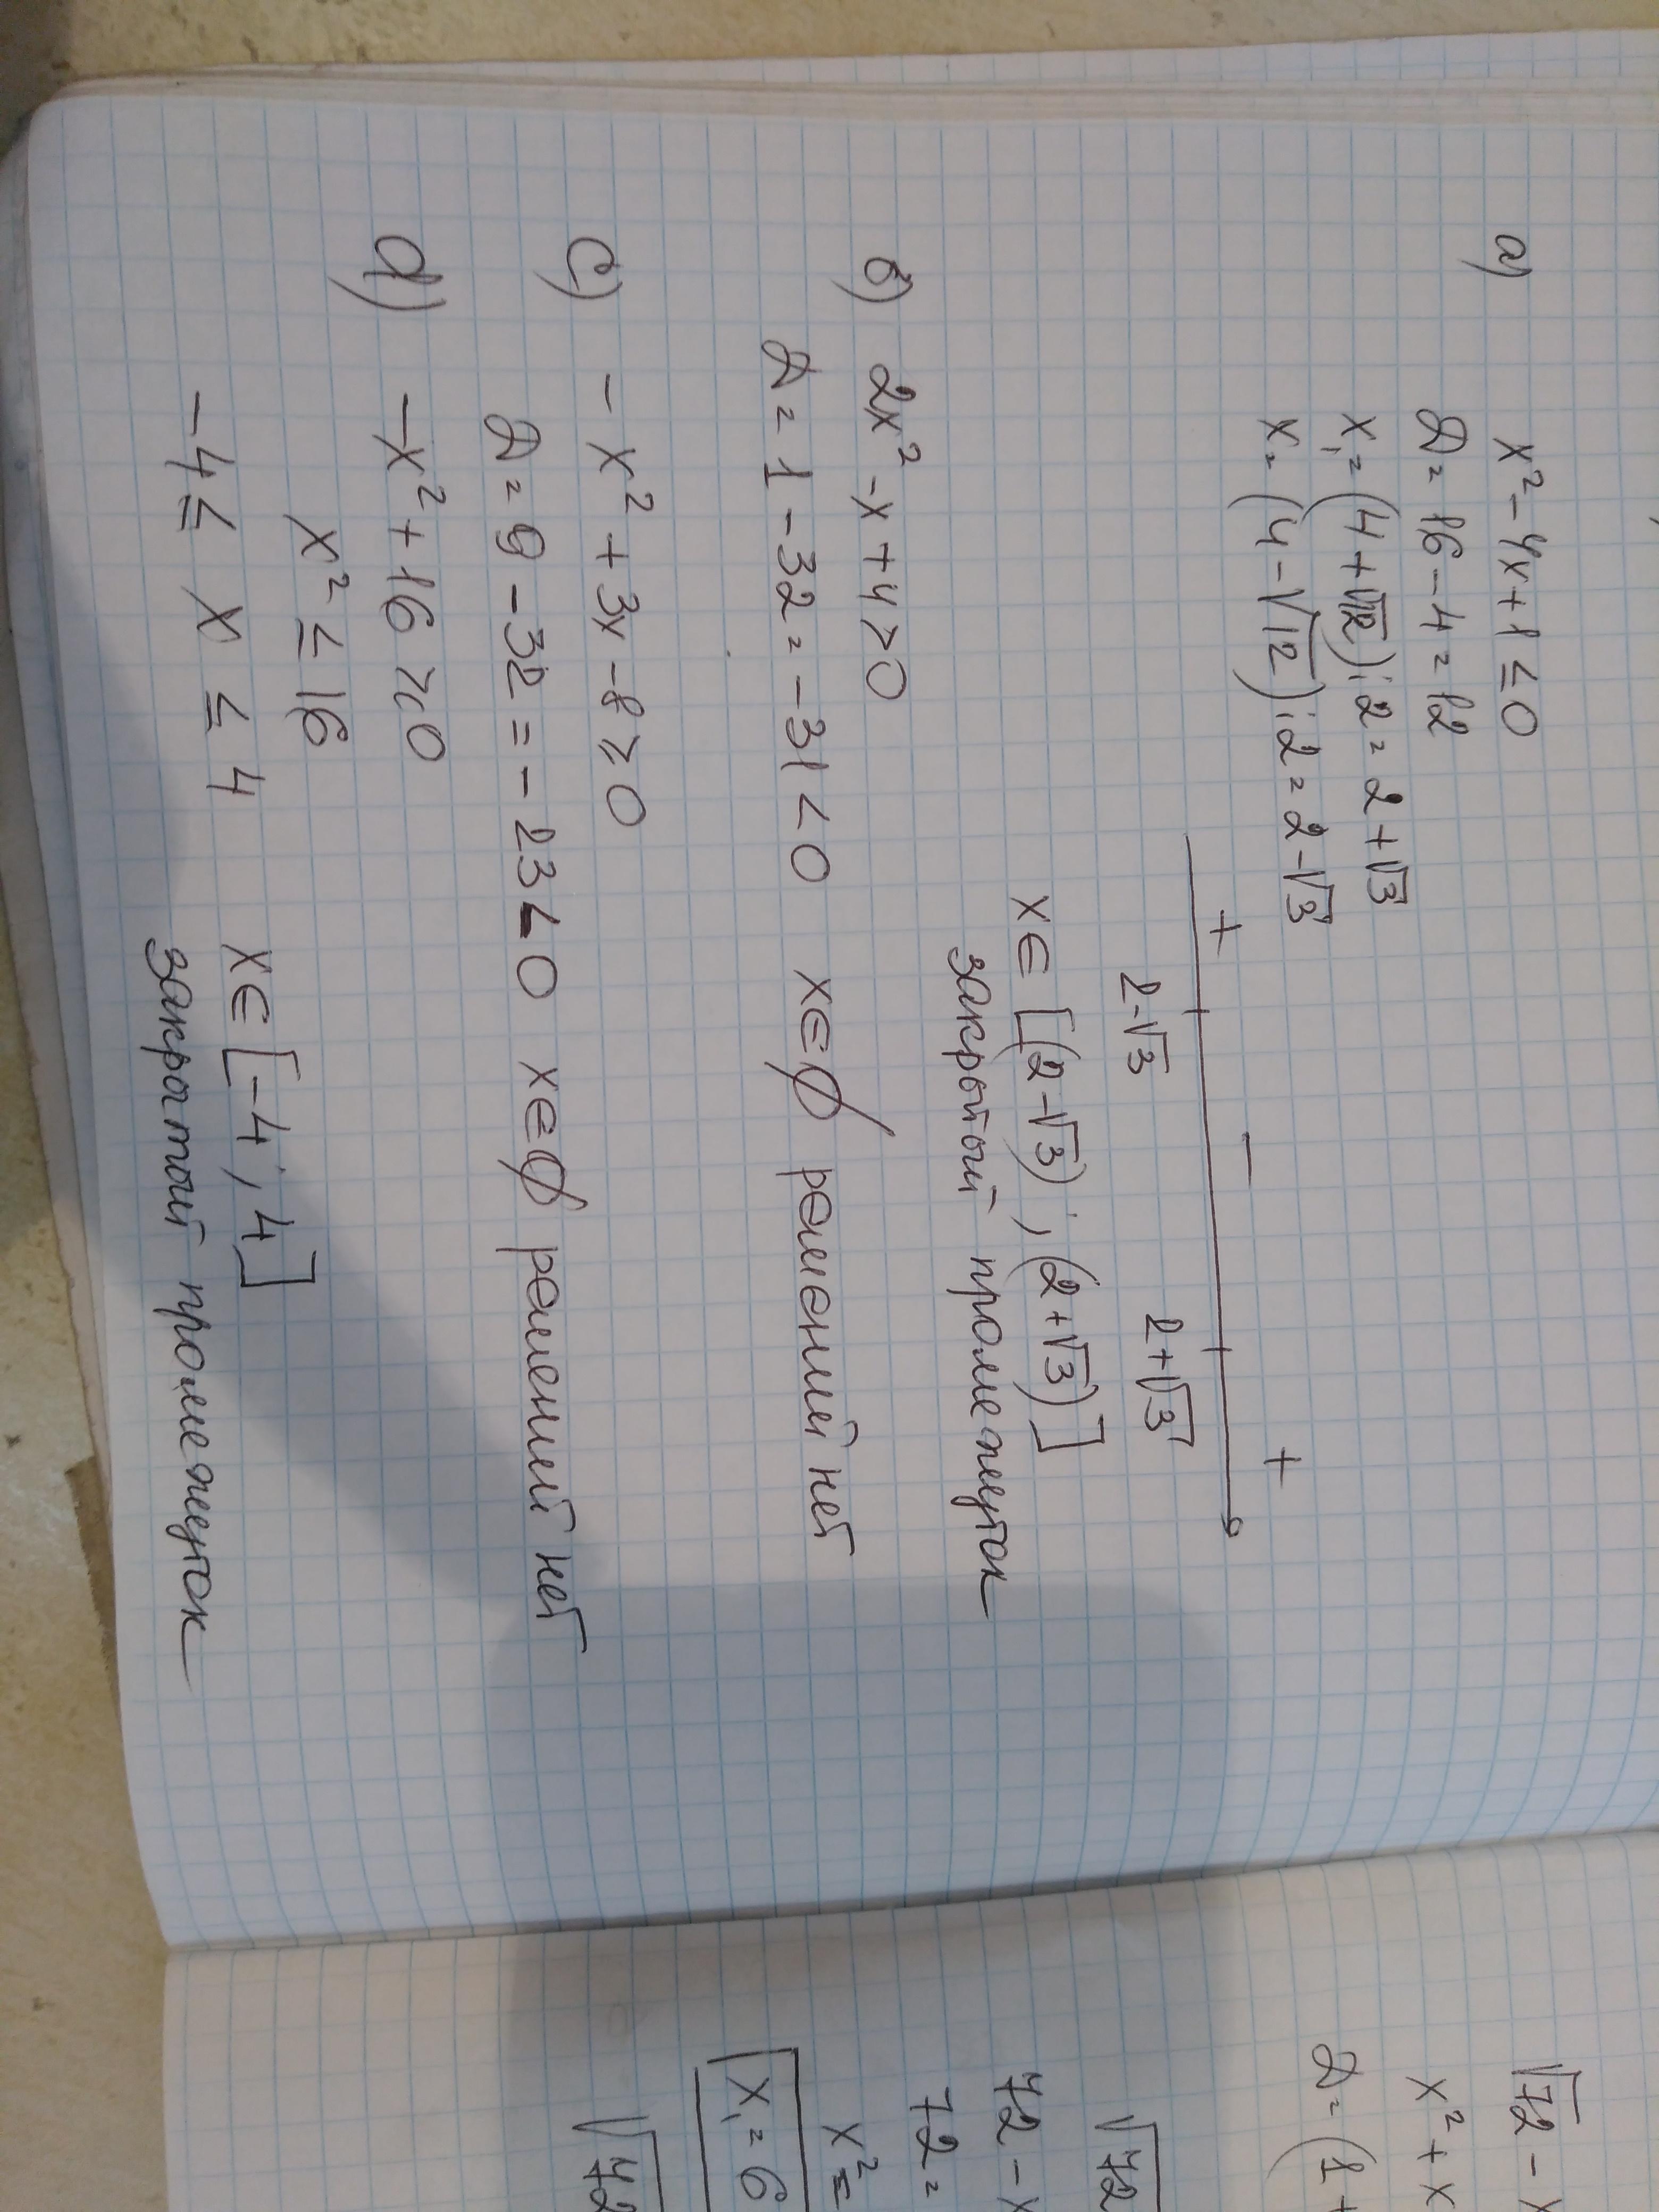 а) x² - 4x + 1 ≤ 0
D = 16 - 4 = 12
x₁ = (4 + √12) : 2 = 2 + √3
x = (4 - √12) : 2 = 2 - √3
+ — +
2-√3 2+√3
x ∈ [(2 - √3) ; (2 + √3)]
закрытый промежуток
б) 2x² - x + 4 > 0
D = 1 - 32 = -31 < 0 x ∈ ∅ решений нет
c) - x² + 3x - 8 ≥ 0
D = 9 - 32 = - 23 < 0 x ∈ ∅ решений нет
d) -x² + 16 ≥ 0
x² ≤ 16
-4 ≤ x ≤ 4 x ∈ [-4 ; 4]
закрытый промежуток
√72 - x
x² + x
D = (1 +
√72
72 - x
72 =
x² =
x₁ = 6
√72